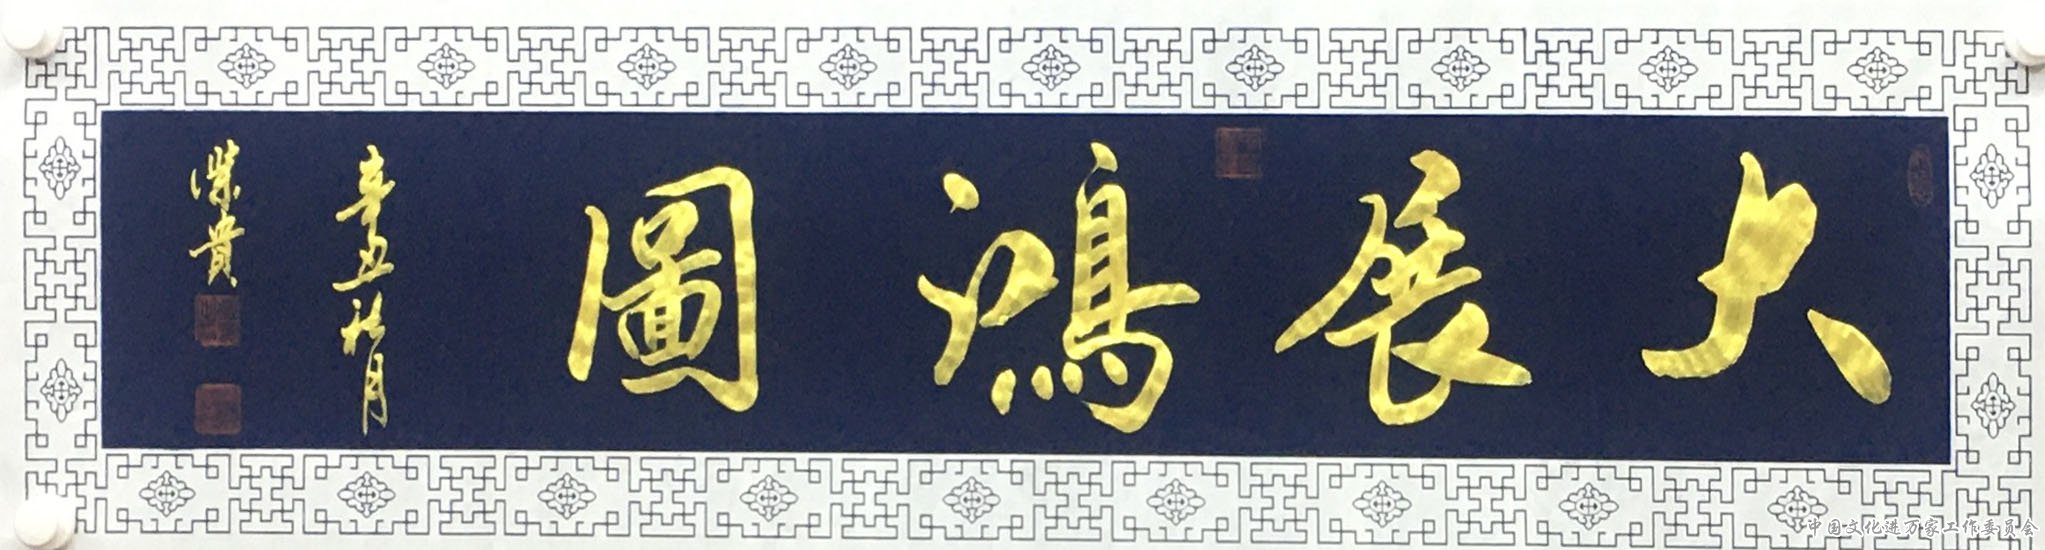 大展鴻圖
辛丑秋月
荣贵
中国文化进万家工作委员会